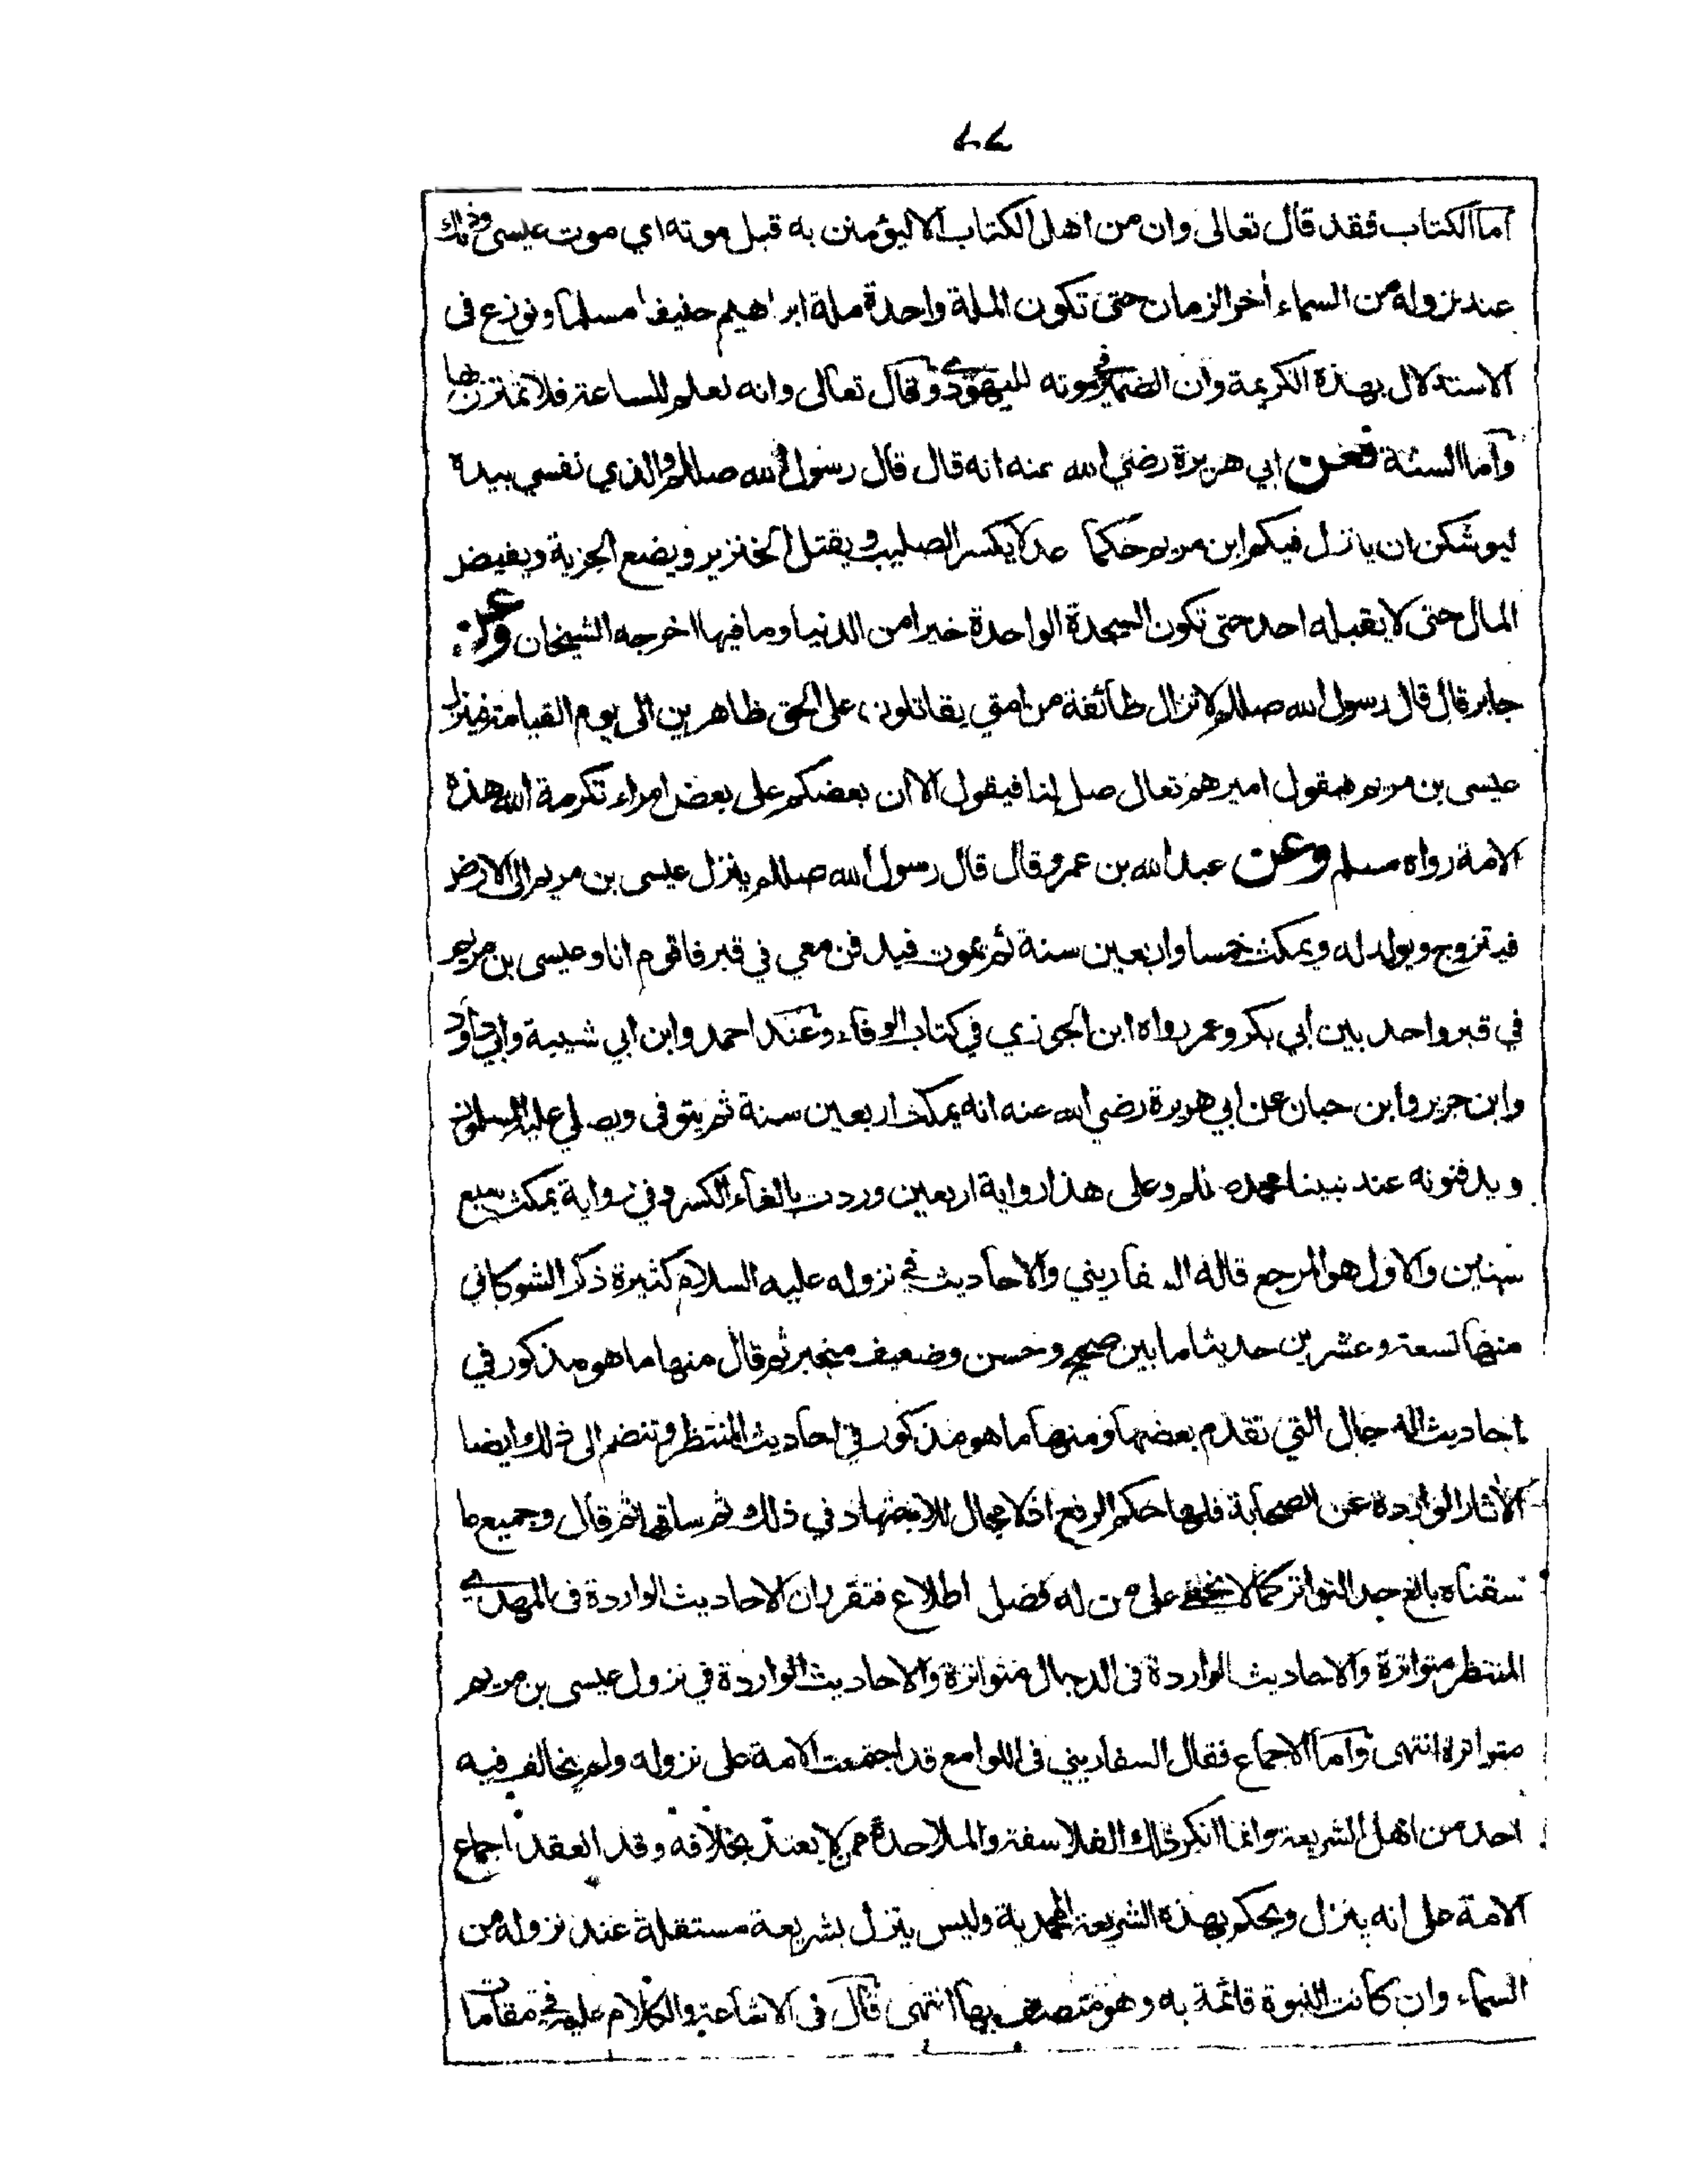 ٧٧
اما الكتاب فقد قال تعالى وان من اهل الكتاب الا ليؤمنن به قبل موته اي موت عيسى وذلك
عند نزوله من السماء أخر الزمان حتى تكون الملة واحدة ملة ابراهيم حنيفا مسلما ونوزع في
الاستدلال بهذه الكريمة وان الضمير في موته لليهودي وقال تعالى وانه لعلم للساعة فلا تمترن بها
وأما السنة فعن ابي هريرة رضي الله عنه انه قال قال رسول الله صللم والذي نفسي بيده
ليوشكن ان ينزل فيكم ابن مريم حكما عدلا يكسر الصليب ويقتل الخنزير ويضع الجزية ويفيض
المال حتى لا يقبله احد حتى تكون السجدة الواحدة خيرا من الدنيا وما فيها اخرجه الشيخان وعن
جابر قال قال رسول الله صللم لا تزال طائفة من امتي يقاتلون على الحق ظاهرين الى يوم القيامة فينزل
عيسى بن مريم فيقول اميرهم تعال صل لنا فيقول الا ان بعضكم على بعض امراء تكرمة الله هذه
الامة رواه مسلم وعن عبد الله بن عمرو قال قال رسول الله صللم ينزل عيسى بن مريم الى الارض
فيتزوج ويولد له ويمكث خمسا واربعين سنة ثم يموت فيدفن معي في قبر فاقوم انا وعيسى بن مريم
في قبر واحد بين أبي بكر وعمر رواه ابن الجوزي في كتاب الوفاء وعند احمد وابن ابي شيبة وابي داود
وابن جرير وابن حبان عن ابي هريرة رضي الله عنه انه يمكث اربعين سنة ثم يتوفى ويصلي عليه المسلمون
ويدفنونه عند نبينا محمد صللم وعلى هذا رواية اربعين وردت بالغاء الكسر وفي رواية يمكث سبع
سنين والاول هو المرجع قاله السفاريني والاحاديث في نزوله عليه السلام كثيرة ذكر الشوكاني
منها تسعة وعشرين حديثا ما بين صحيح وحسن وضعيف منجبر ثم قال منها ما هو مذكور في
احاديث الدجال التي تقدم بعضها ومنها ما هو مذكور في احاديث المنتظر وتنضم الى ذلك ايضا
الأثار الواردة عن الصحابة فلها حكم الرفع اذ لا مجال للاجتهاد في ذلك ثم ساقها ثم قال وجميع ما
سقناه بالغ حد التواتر كما لا يخفى على من له فضل اطلاع فتقرر ان الاحاديث الواردة في المهدي
المنتظر متواترة والاحاديث الواردة في الدجال متواترة والاحاديث الواردة في نزول عيسى بن مريم
متواترة انتهى وأما الاجماع فقال السفاريني في اللوامع قد اجتمعت الامة على نزوله ولم يخالف فيه
احد من اهل الشريعة وانما انكر ذلك الفلاسفة والملاحدة ممن لا يعتد بخلافه وقد انعقد اجماع
الامة على انه ينزل ويحكم بهذه الشريعة المحمدية وليس ينزل بشريعة مستقلة عند نزوله من
السماء وان كانت النبوة قائمة به وهو متصف بها انتهى قال في الاشاعة والكلام عليه في مقامات